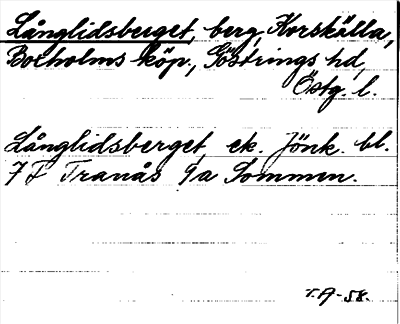 Långlidsberget, berg, Korskälla,
Boxholms köp., Göstrings hd,
Östg. l.
Långlidsberget, ek. Jönk. bl.
7 F Tranås 9a Sommen.
T.A-58.